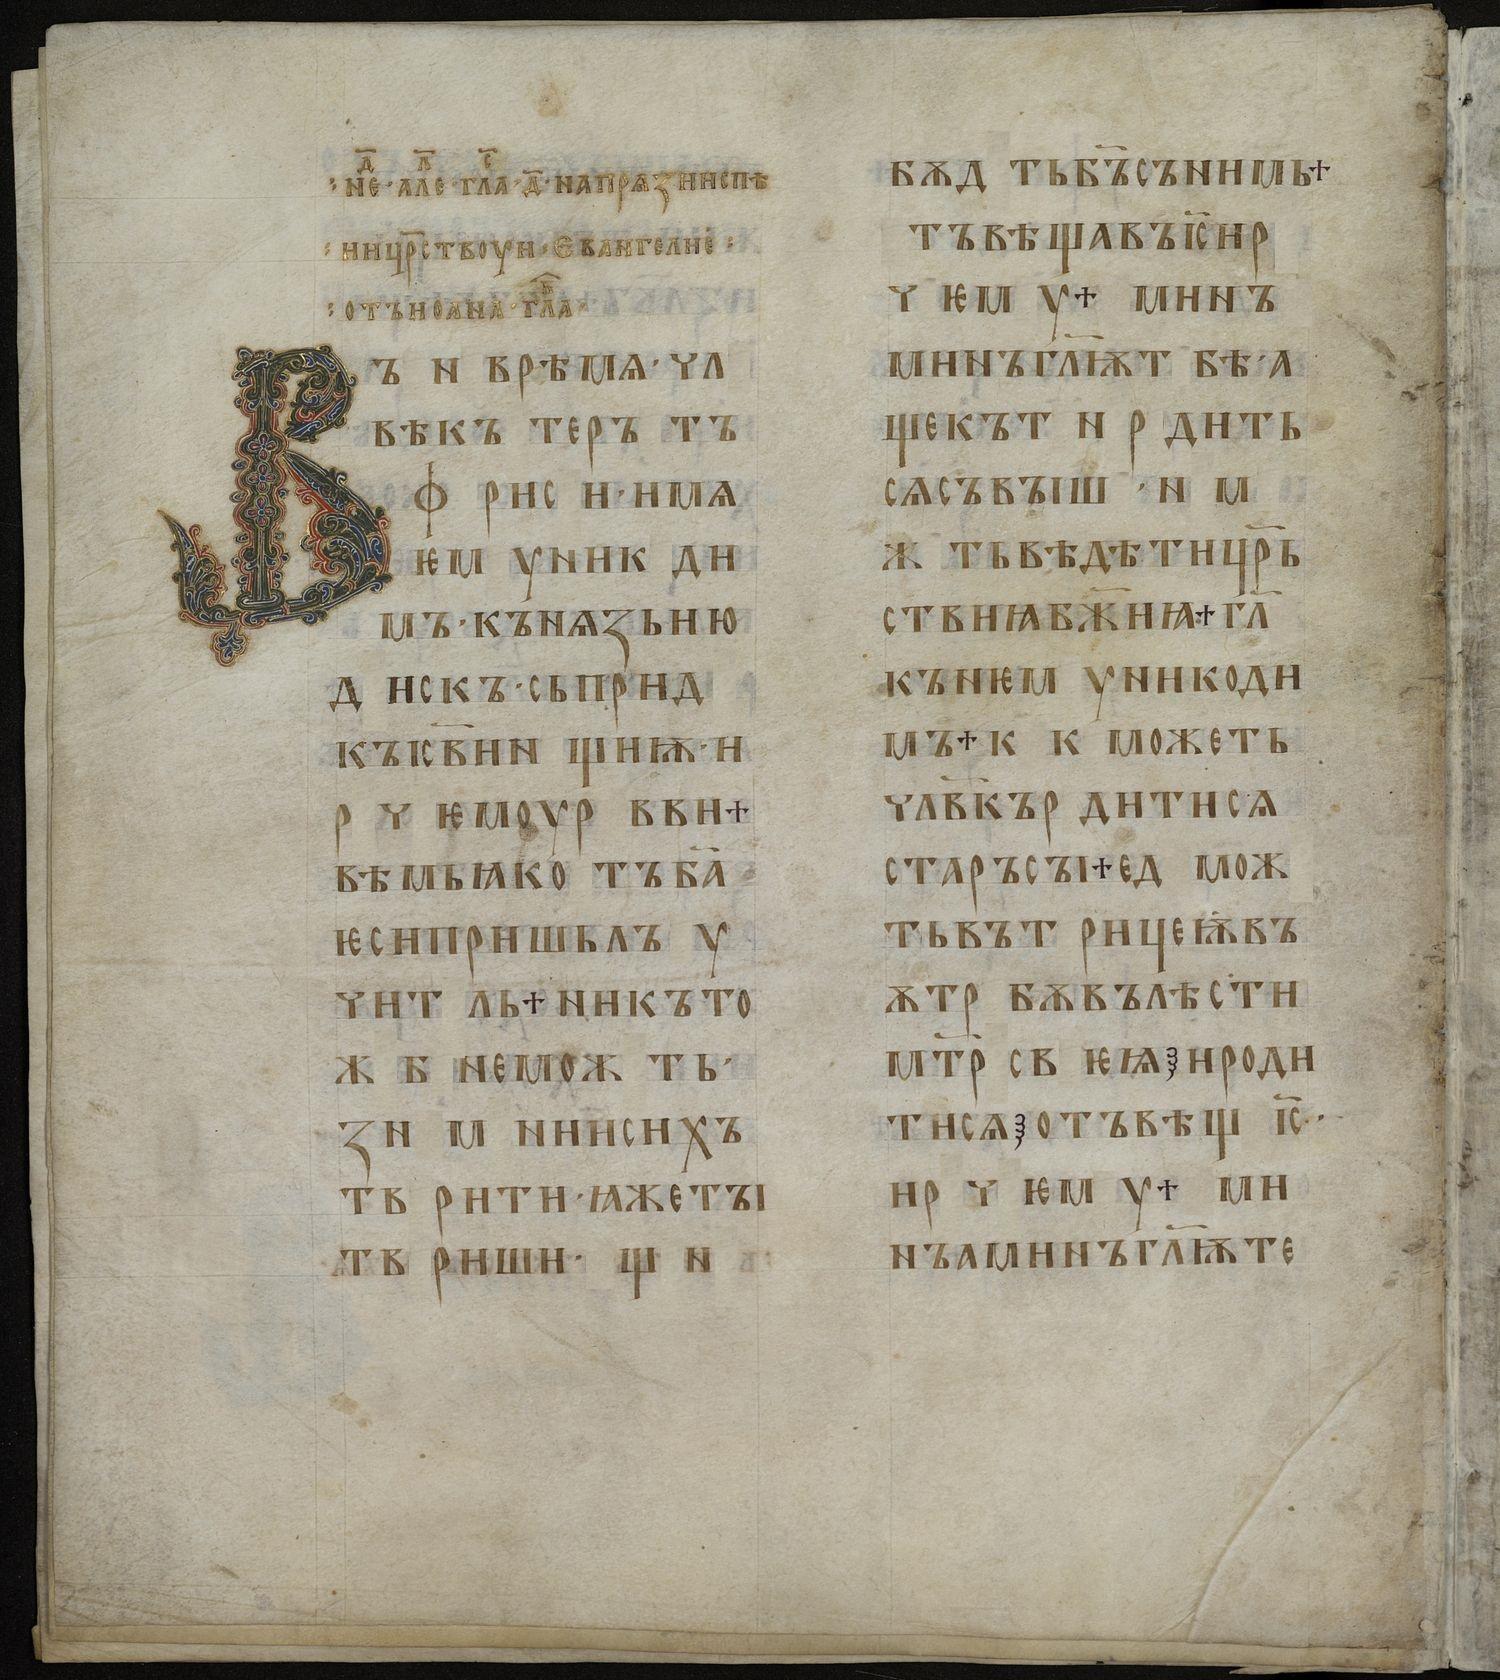 :неⷣ·алеⷧ·глаⷭ·д҃·напразниспѣ
:ницрⷭ҇твоуи·Евангелиѥ:
:отъиоана·глаⷡ
Ъ н врѣмѧ·чл
вѣкъ теръ тъ
ф рис и·имѧ
ѥм уник ди
мъ·кънѧзьию
д искъ·сьприд
къісв҃ин щиѭ·и
р ч ѥмоур вви✝
вѣмьꙗко тъба҃
ѥсипришьлъ у
чит ль✝никъто
ж б немож ть·
зн м нииⷯсихъ
тв рити·ꙗжетꙑ
тв риши· щ н
бѫд тьбъ҃съниıмь✝
тъвѣщавъіс҃ир
ч ѥм у✝ минъ
минъгл҃ѭт бѣ·а
щекът н р дить
сѧсъвꙑш ·н м
ж тьвѣдѣтицр҃ь
ствиꙗбж҃иꙗ✝гл҃
кънѥм уникоди
мъ✝к к можеть
члв҃кър дитисѧ
старъсꙑ✝ед мож
тьвът рицеѭвъ
ѫтр бѫвълѣсти
мт҃р св ѥꙗꙁироди
тисѧꙁотъвѣщ іс҃·
ир ч ѥм у✝ ми
нъаминъгл҃ѭте